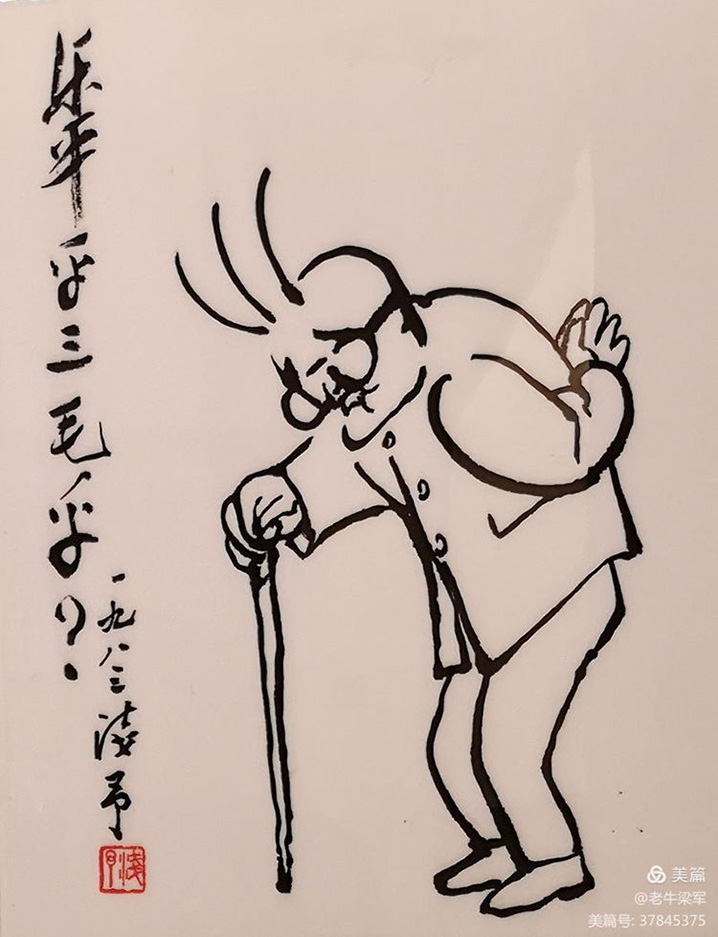 乐平乎三毛乎？
一九八三浅予
美篇
@老牛梁军
美篇号: 37845375